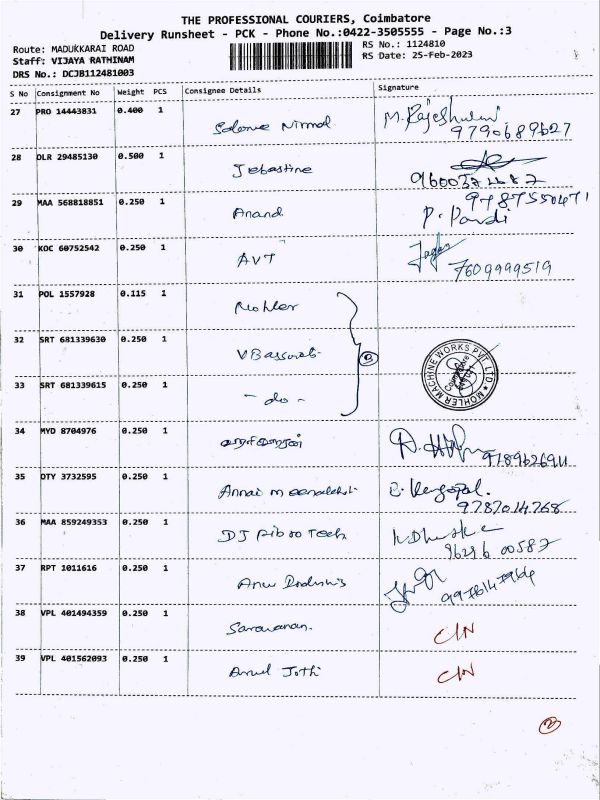 THE PROFESSIONAL COURIERS, Coimbatore
Delivery Runsheet - PCK - Phone No.:0422-3505555 - Page No.:3
Route: MADUKKARAI ROAD
RS No.: 1124810
Staff: VIJAYA RATHINAM
RS Date: 25-Feb-2023
DRS No.: DCJB112481003
S No Consignment No Weight PCS Consignee Details Signature
27 PRO 14443831 0.400 1 Nirmal M. Rajeshwari
9790689627
28 DLR 29485130 0.500 1 Jebastine
29 MAA 568818851 0.250 1 Anand P. Pandi
30 KOC 60752542 0.250 1 AVT
7609999519
31 POL 1557928 0.115 1 Mohler
32 SRT 681339630 0.250 1
MOHLER MACHINE WORKS PVT LTD
33 SRT 681339615 0.250 1 - do -
34 MYD 8704976 0.250 1
35 OTY 3732595 0.250 1 Annai meenakshi
9787014768
36 MAA 859249353 0.250 1 DJ Fibro Tech
37 RPT 1011616 0.250 1
38 VPL 401494359 0.250 1 Saravanan. C/N
39 VPL 401562093 0.250 1 Arul Jothi C/N
2